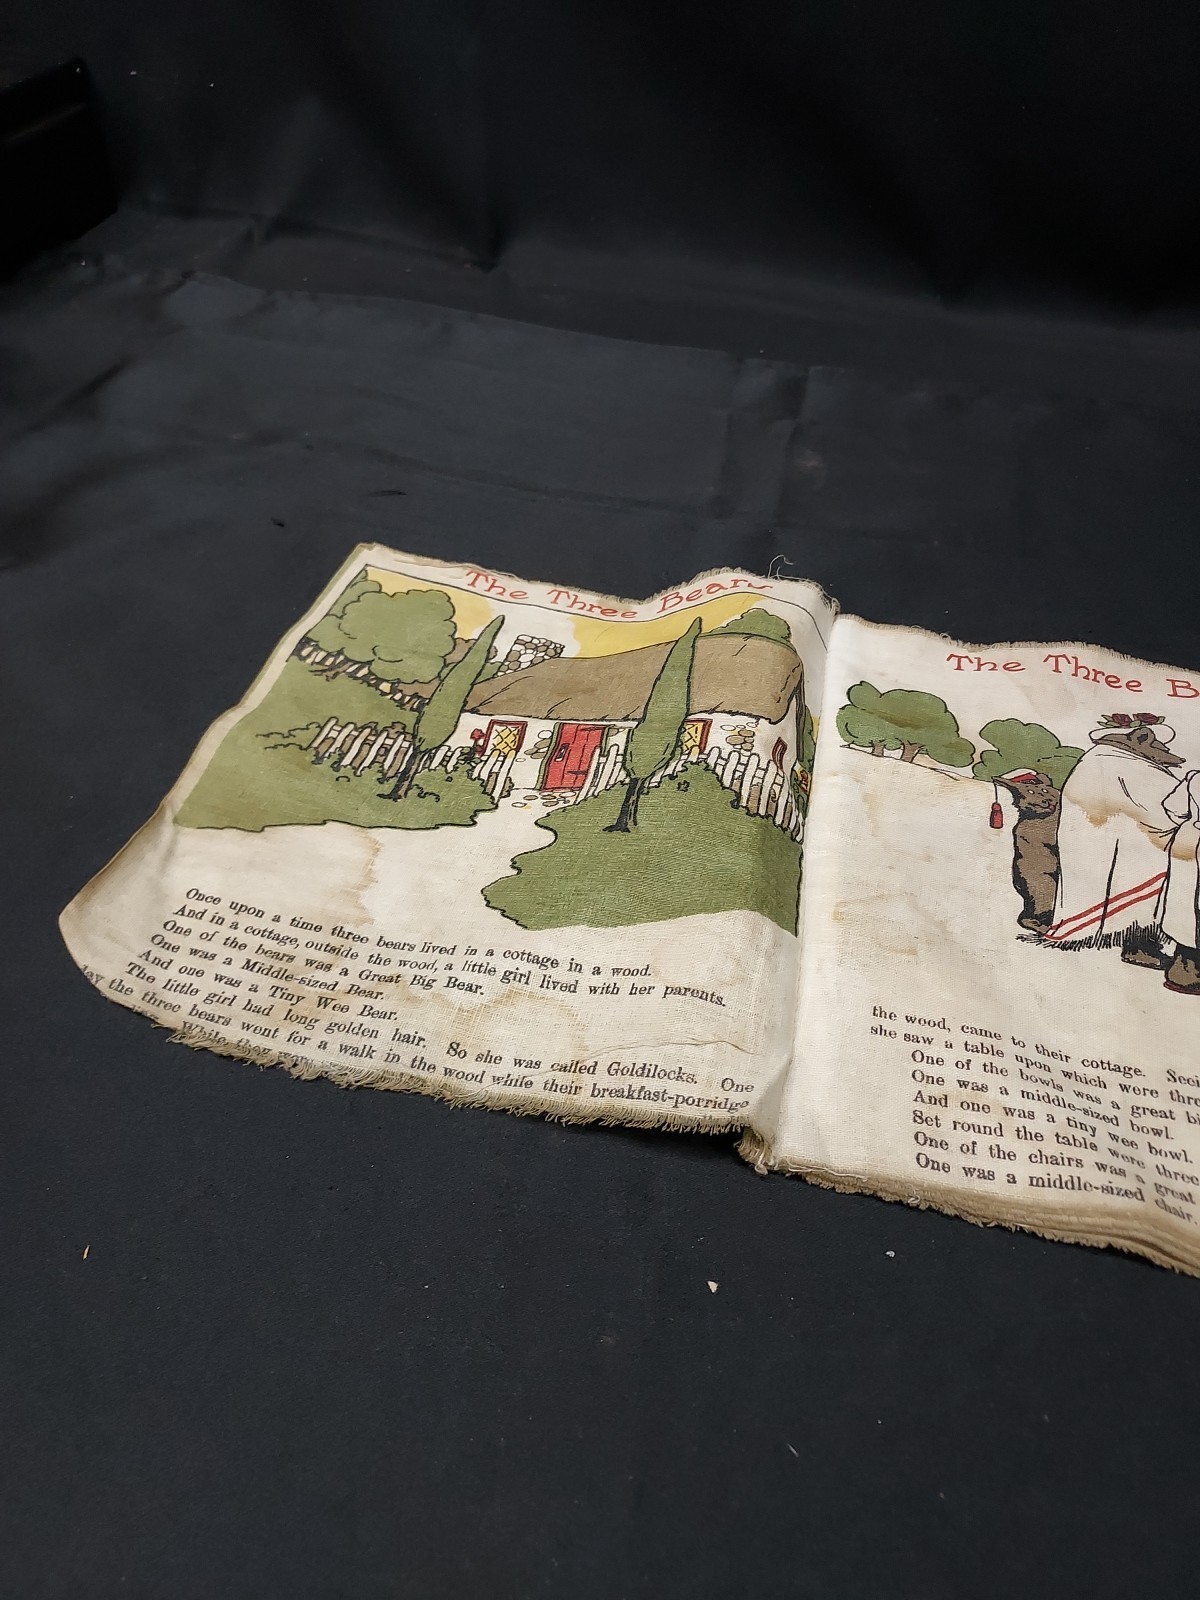 The Three Bears
Once upon a time three bears lived in a cottage in a wood.
And in a cottage, outside the wood, a little girl lived with her parents.
One of the bears was a Great Big Bear.
One was a Middle-sized Bear.
And one was a Tiny Wee Bear.
The little girl had long golden hair. So she was called Goldilocks. One
day the three bears went for a walk in the wood while their breakfast-porridge
While they were
The Three B
the wood, came to their cottage. Seei
she saw a table upon which were thre
One of the bowls was a great bi
One was a middle-sized bowl.
And one was a tiny wee bowl.
Set round the table were three
One of the chairs was a great
One was a middle-sized chair.